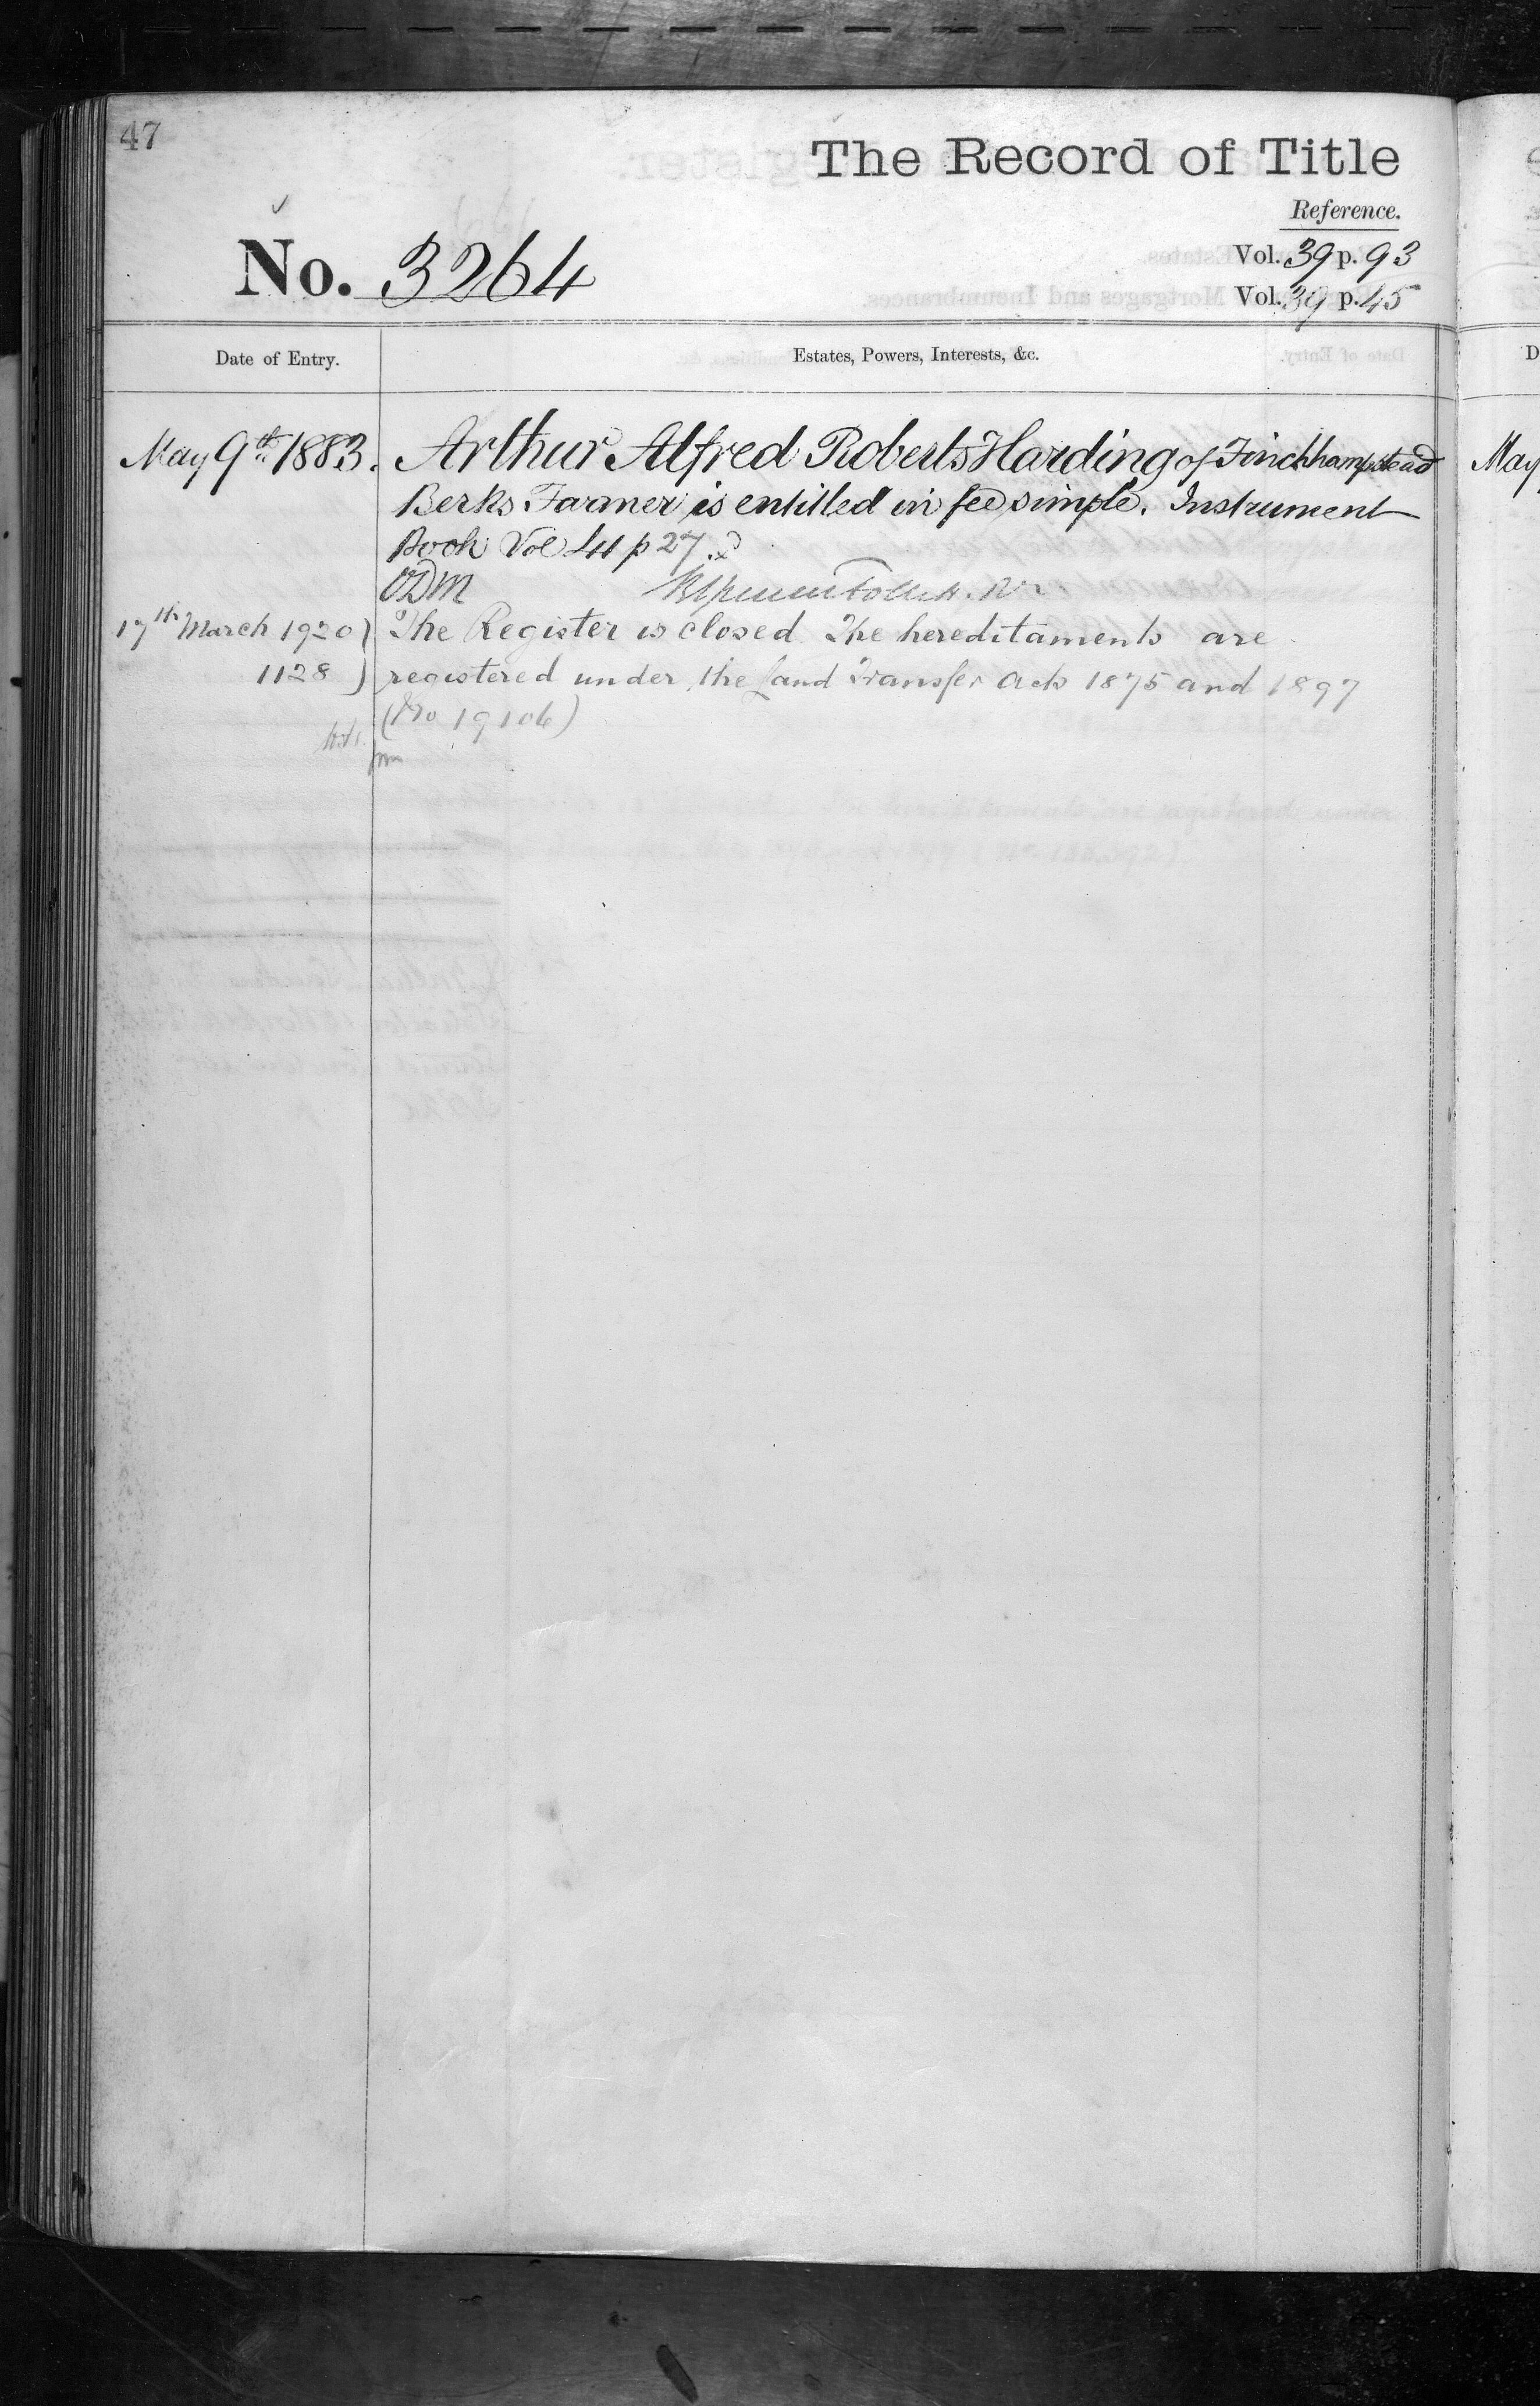 47
The Record of Title
Reference.
No. 3264
Vol. 39 p. 93
Vol. 39 p. 45
Date of Entry.
Estates, Powers, Interests, &c.
May 9th 1883. Arthur Alfred Roberts Harding of Finchhampstead
Berks Farmer is entitled in fee simple. Instrument
Book Vol p 27.
17th March 1920) The Register is closed The hereditaments are
1128 ) registered under the Land Transfer Acts 1875 and 1897
(No 19106)
May